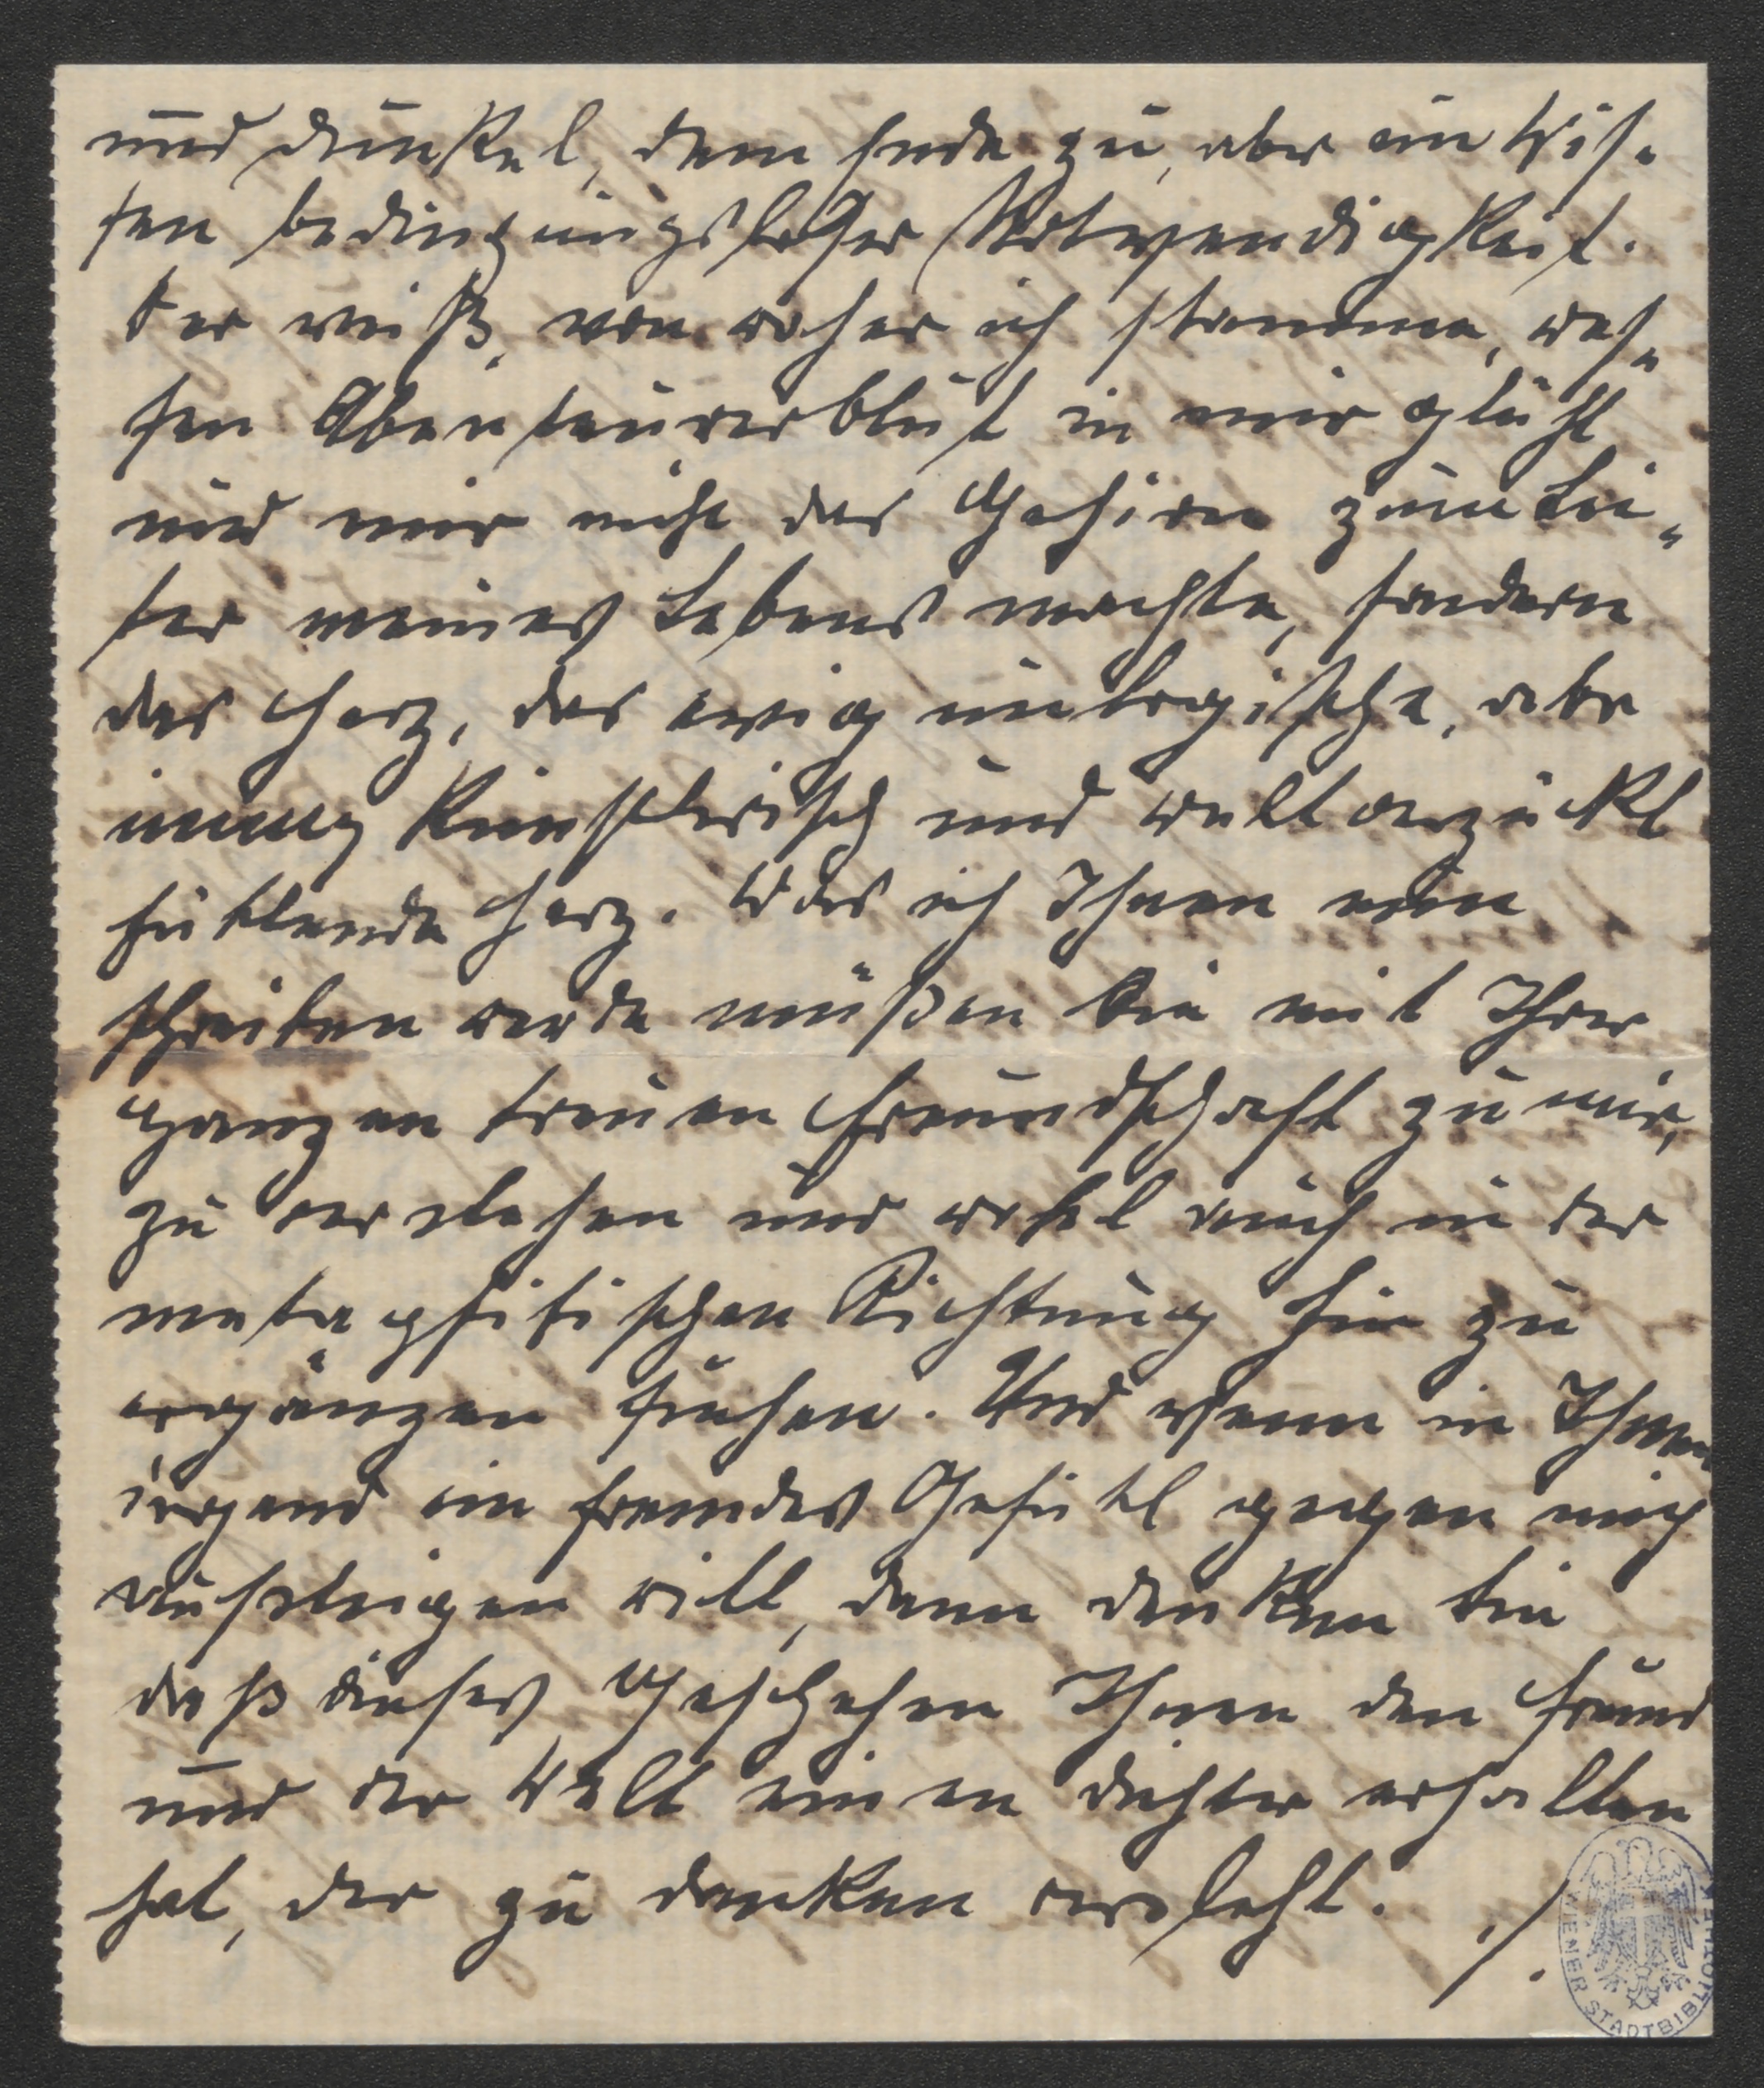 und dunkel, dem Ende zu, aber ein Wis-
sen bedingungsloser Notwendigkeit.
Wer weiß, von woher ich stamme, wes-
sen Abenteurerblut in mir glüht
und mir nicht das Gehirn zum Lei-
ter meines Lebens machte, sondern
das Herz, das ewig unlogische, aber
immer künstlerisch und weltverzückt
fühlende Herz. Was ich Ihnen nun
schreiben werde müßen Sie mit Ihrer
ganzen treuen Freundschaft zu mir,
zu verstehen und wohl auch in der
metaphisischen Richtung hin zu
ergänzen suchen. Und wenn in Ihnen
irgend ein fremdes Gefühl gegen mich
aufsteigen will, dann denken Sie
daß dieses Geschehen Ihnen den Freund
und der Welt einen Dichter erhalten
hat, der zu danken versteht. ./.
WIENER STADTBIBLIOTHEK